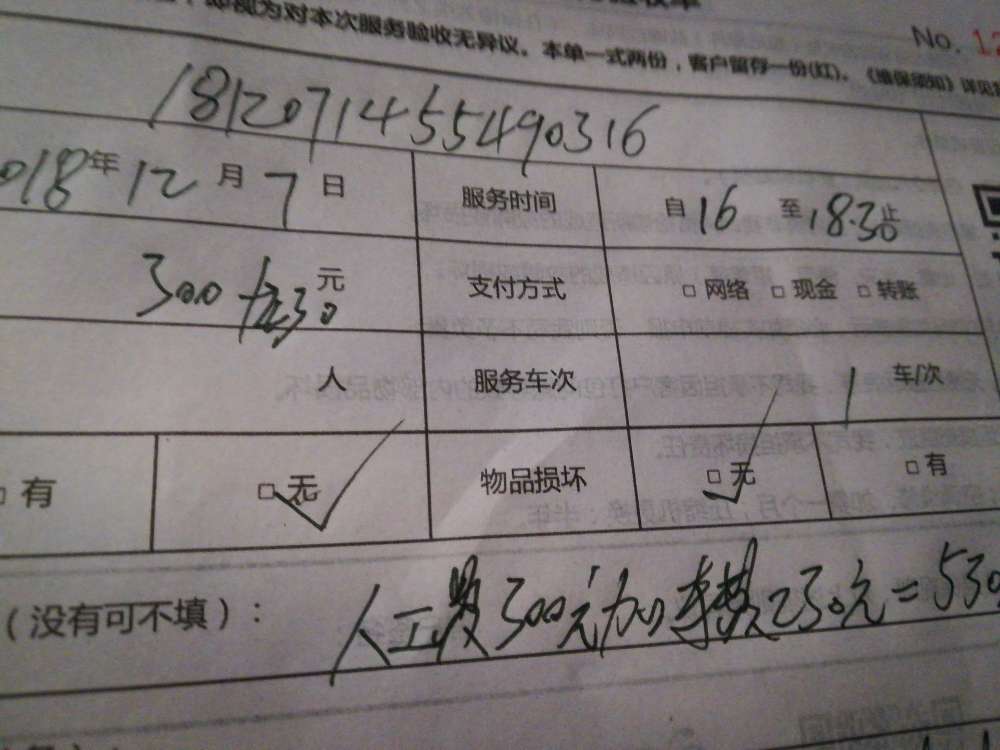 即视为对本次服务验收无异议。本单一式两份，客户留存一份(红)。《维保须知》详见
No. 12
1812071455490316
018年12月7日 服务时间 自16至18.30止
300 元 支付方式 □网络 □现金 □转账
人 服务车次 1 车/次
□有 □无 物品损坏 □无 □有
（没有可不填）： 人工费300元加车费230元=530